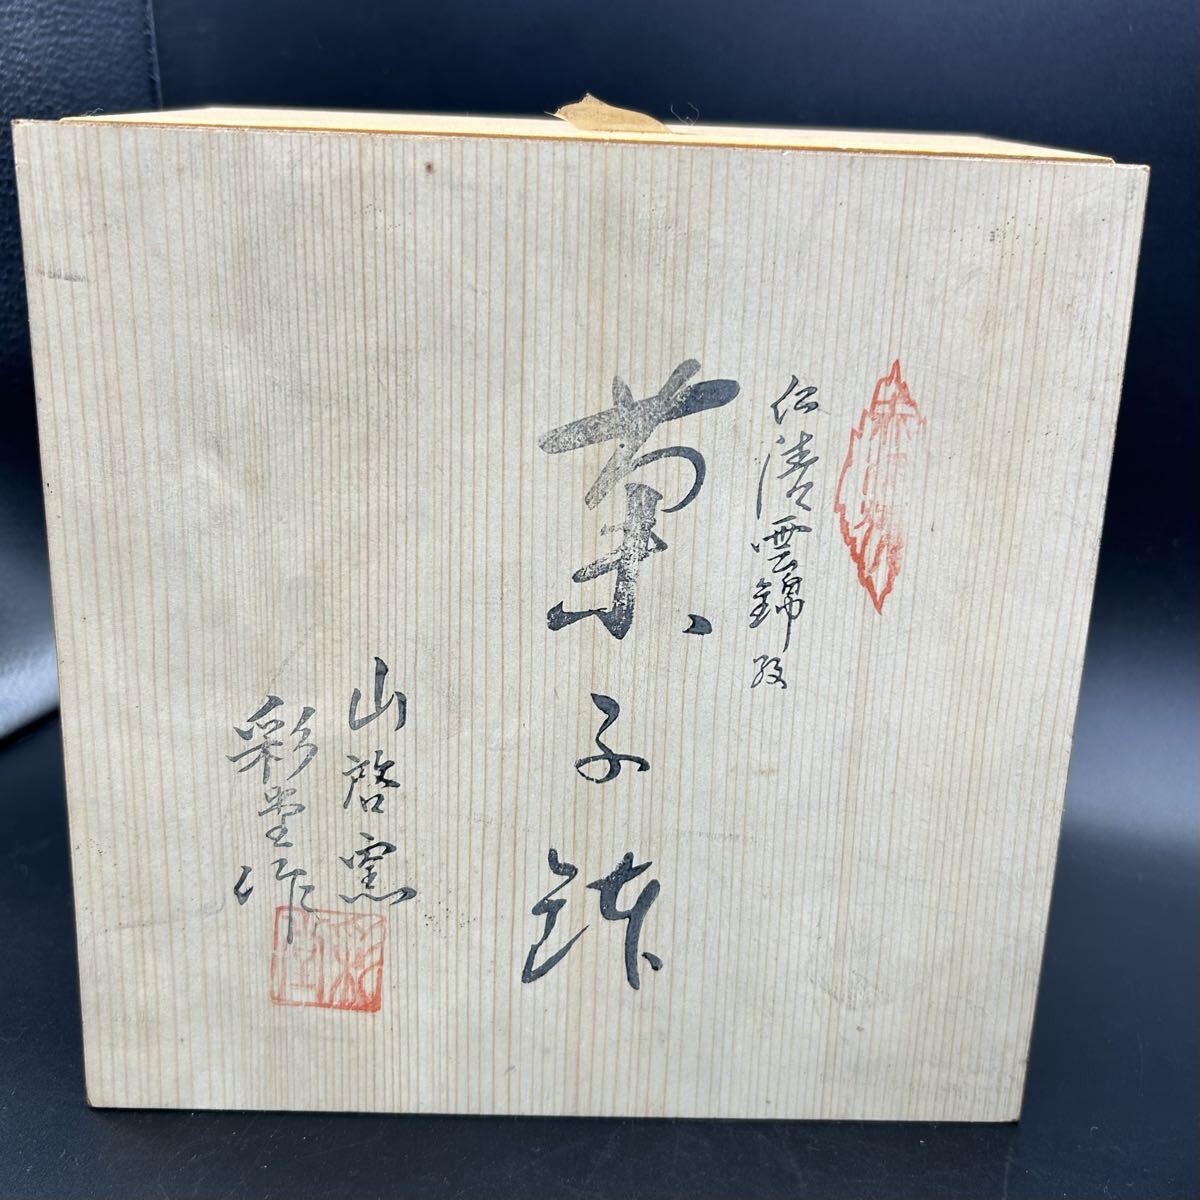 仁清雲錦紋
菓子鉢
山啓窯
彩堂作
彩堂